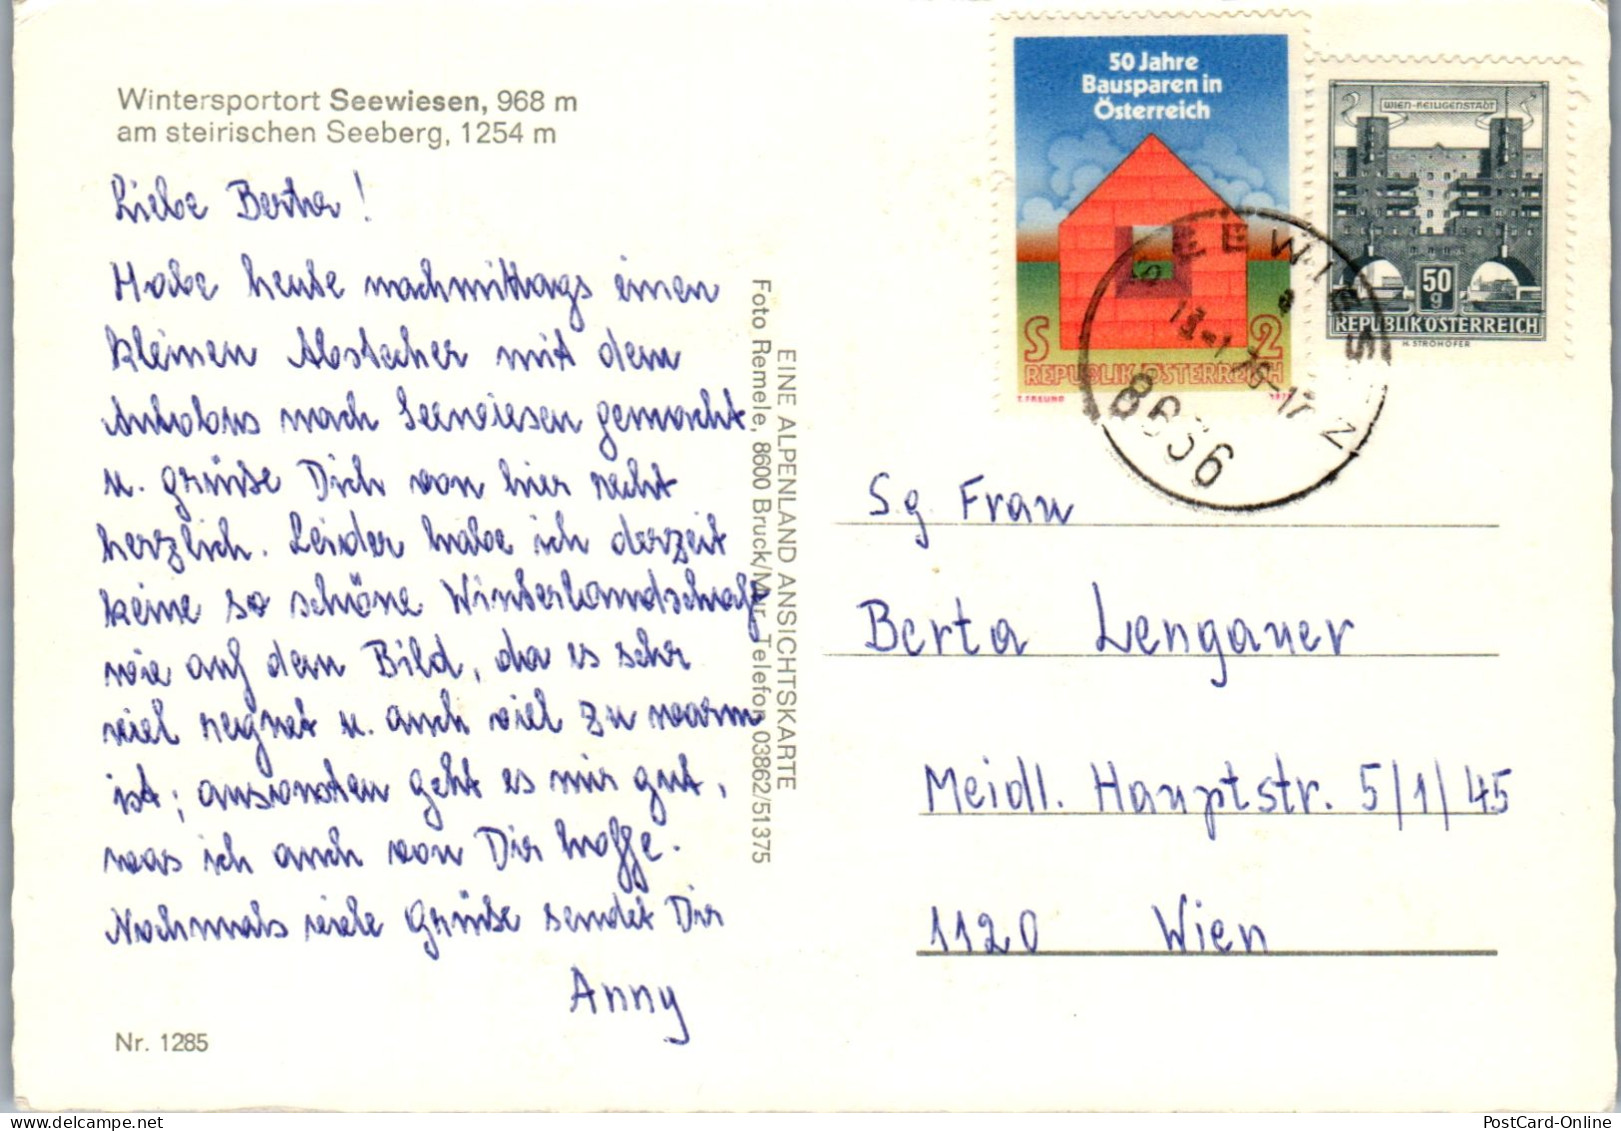 Wintersportort Seewiesen, 968 m
am steirischen Seeberg, 1254 m
Liebe Berta!
Habe heute nachmittags einen
kleinen Abstecher mit dem
Autobus nach Seewiesen gemacht
u. grüße Dich von hier recht
herzlich. Leider habe ich derzeit
keine so schöne Winterlandschaft
wie auf dem Bild, da es sehr
viel regnet u. auch viel zu warm
ist; ansonsten geht es mir gut,
was ich auch von Dir hoffe.
Nochmals viele Grüße sendet Dir
Anny
Nr. 1285
EINE ALPENLAND ANSICHTSKARTE
Foto Remele, 8600 Bruck/Mur, Telefon 03862/51375
50 Jahre
Bausparen in
Österreich
S 2
REPUBLIK ÖSTERREICH
WIEN-HEILIGENSTADT
50
g
REPUBLIK ÖSTERREICH
H. STROHOFER
SEEWIESEN
8636
Sg. Frau
Berta Lengauer
Meidl. Hauptstr. 5/1/45
1120 Wien
PostCard-Online